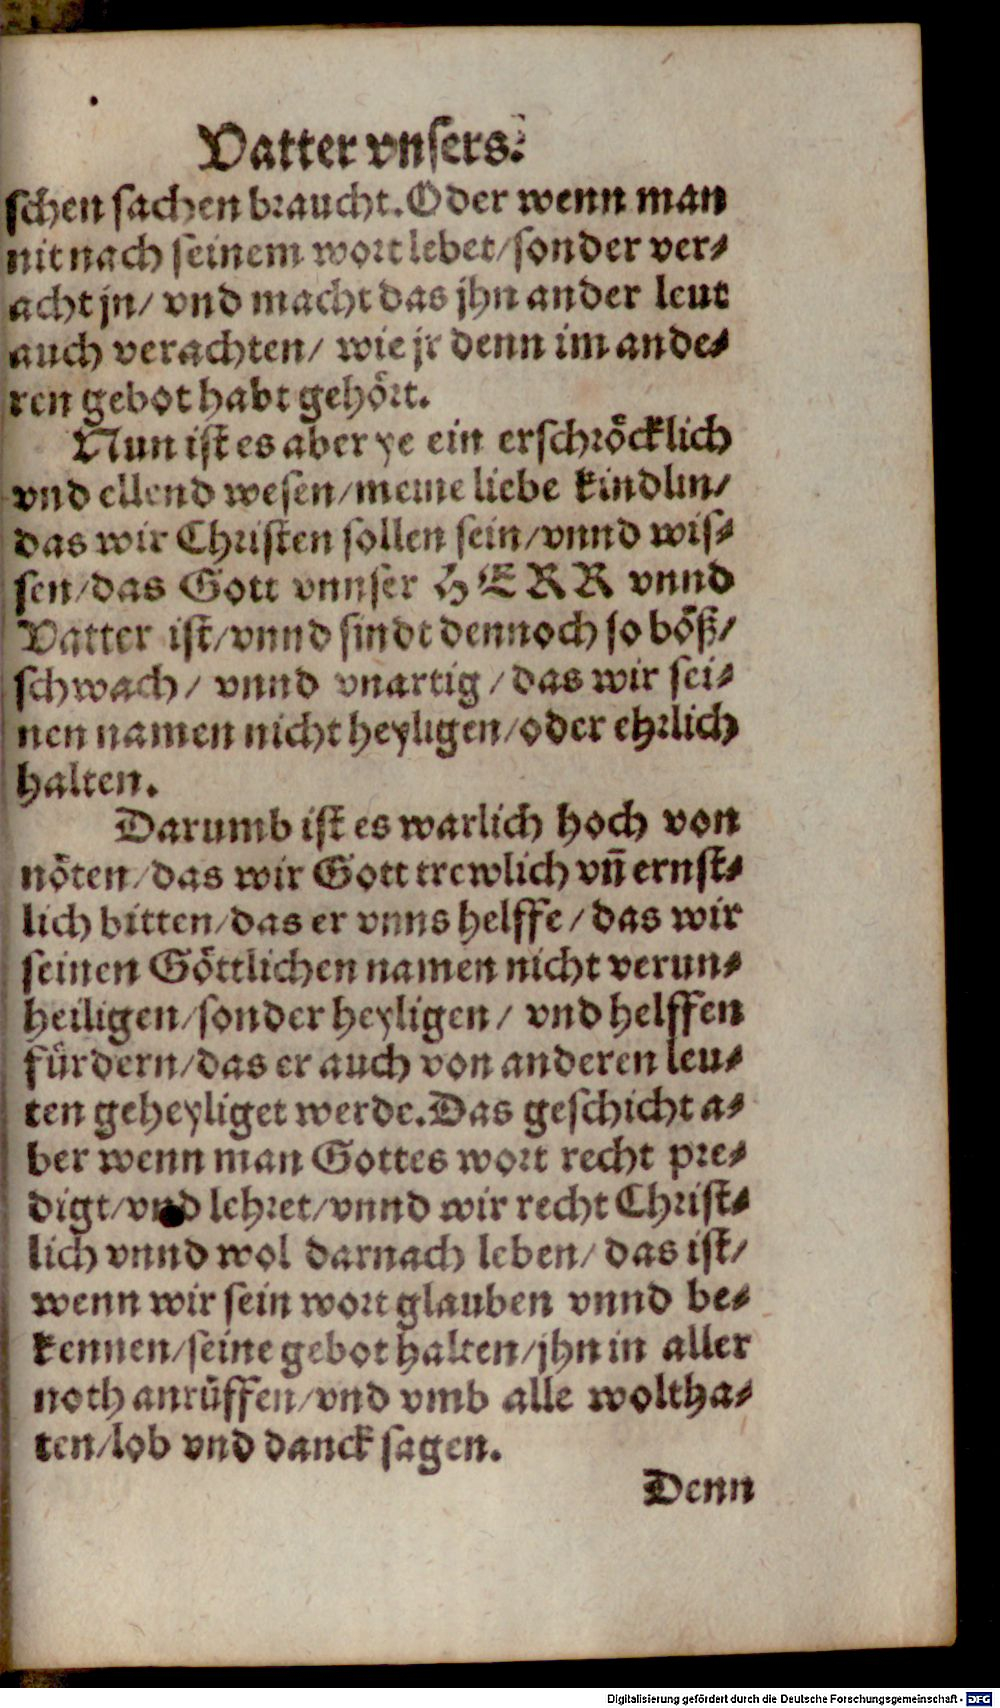 Vatter vnsers.
schen sachen braucht. Oder wenn man
nit nach seinem wort lebet/ sonder ver⸗
acht jn/ vnd macht das jhn ander leut
auch verachten/ wie jr denn im ande⸗
ren gebot habt gehört.
Nun ist es aber ye ein erschröcklich
vnd ellend wesen/ meine liebe kindlin/
das wir Christen sollen sein/ vnnd wis⸗
sen/ das Gott vnnser HERR vnnd
Vatter ist/ vnnd sindt dennoch so böß/
schwach/ vnnd vnartig/ das wir sei⸗
nen namen nicht heyligen/ oder ehrlich
halten.
Darumb ist es warlich hoch von
nöten/ das wir Gott trewlich vn̄ ernst⸗
lich bitten/ das er vnns helffe/ das wir
seinen Göttlichen namen nicht verun⸗
heiligen/ sonder heyligen/ vnd helffen
fürdern/ das er auch von anderen leu⸗
ten geheyliget werde. Das geschicht a⸗
ber wenn man Gottes wort recht pre⸗
digt/ vnd lehret/ vnnd wir recht Christ⸗
lich vnnd wol darnach leben/ das ist/
wenn wir sein wort glauben vnnd be⸗
kennen/ seine gebot halten/ jhn in aller
noth anrüffen/ vnd vmb alle woltha⸗
ten/ lob vnd danck sagen.
Denn
Digitalisierung gefördert durch die Deutsche Forschungsgemeinschaft - DFG